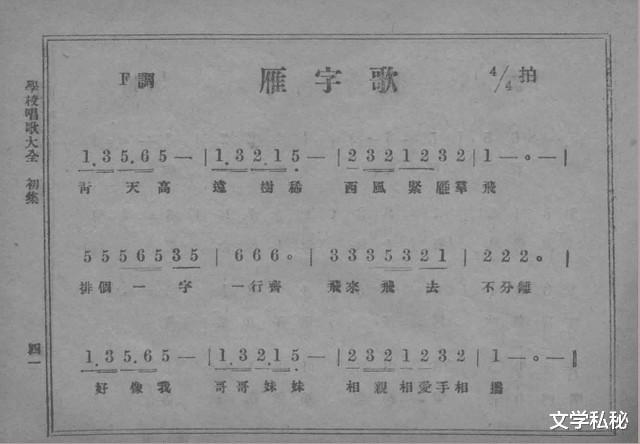 F調 雁字歌 4/4拍
1.3 5.6 5 — | 1.3 2.1 5 — | 2 32 12 32 | 1 — 。 — |
青天高 遠樹稀 西風緊雁羣飛
5 5 5 6 5 3 5 | 6 6 6 。 | 3 3 3 5 3 2 1 | 2 2 2 。 |
排個一字 一行齊 飛來飛去 不分離
1.3 5.6 5 — | 1.3 2.1 5 — | 2 32 12 32 | 1 — 。 — ‖
好像我 哥哥妹妹 相親相愛手相攜
學校唱歌大全 初集
四一
文学私秘